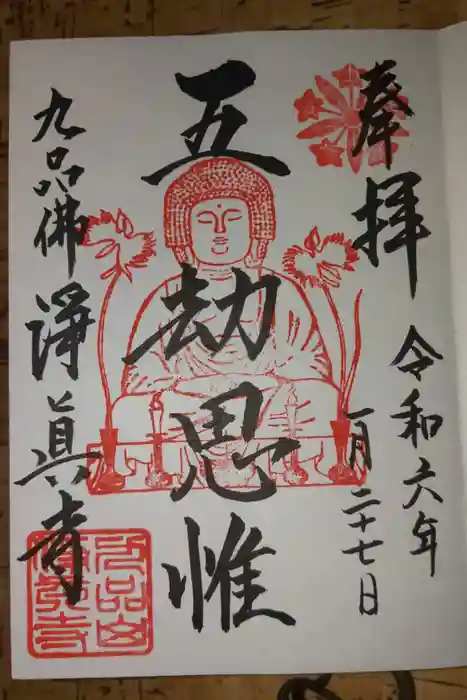 奉拝
令和六年
一月二十七日
五劫思惟
九品佛
淨眞寺
九品山
淨眞寺